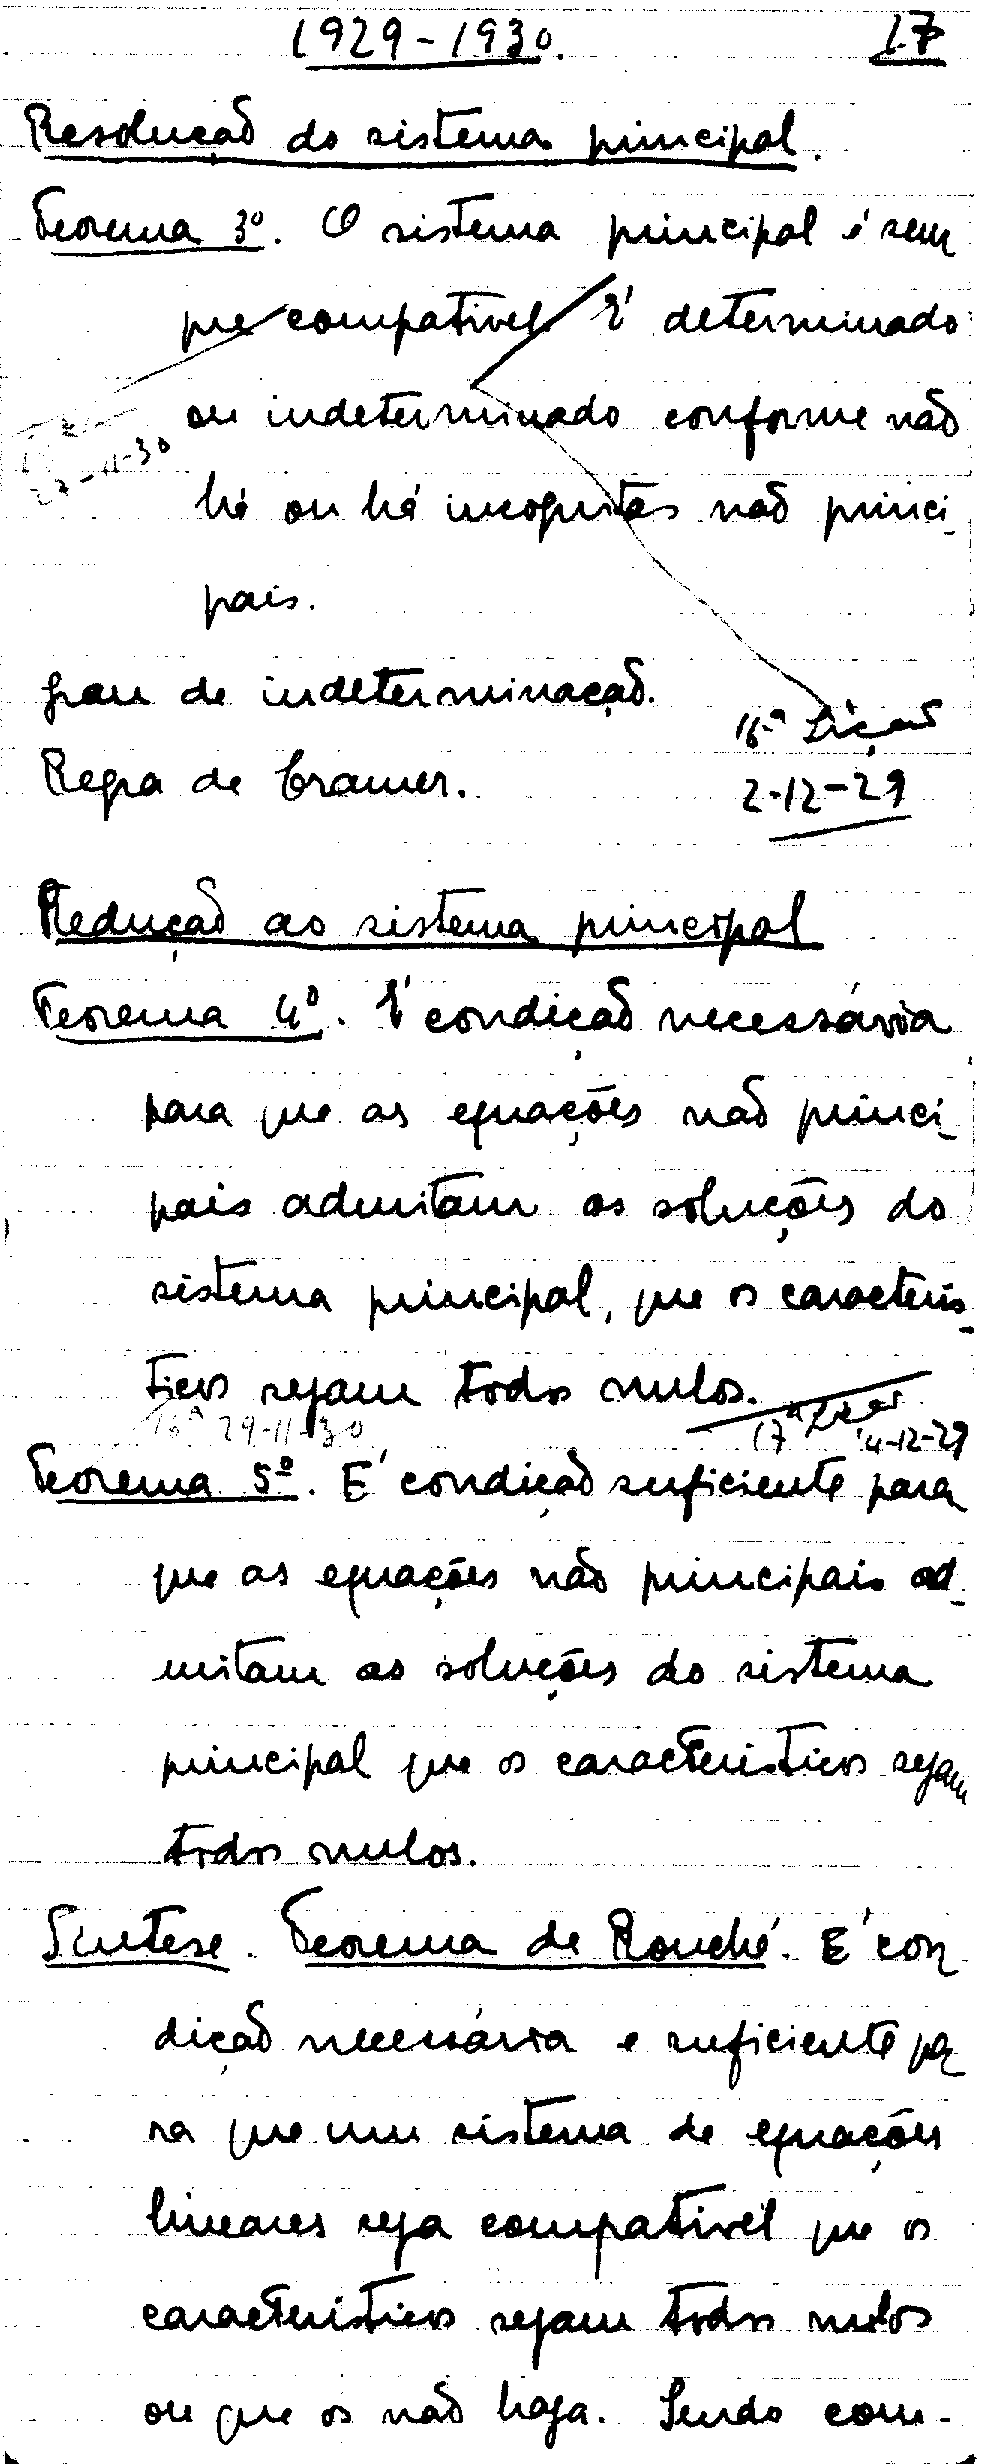 1929-1930.
17
Resolução do sistema principal.
Teorema 3º. O sistema principal é sem
pre compativel É determinado
ou indeterminado conforme não
há ou há incognitas não princi-
pais.
27-11-30
grau de indeterminação.
16ª Lição
Regra de Cramer.
2-12-29
Redução ao sistema principal
Teorema 4º. É condição necessária
para que as equações não princi-
pais admitam as soluções do
sistema principal, que os caracteris-
ticos sejam todos nulos.
16ª 29-11-30
17ª Lição 4-12-29
Teorema 5º. É condição suficiente para
que as equações não principais ad-
mitam as soluções do sistema
principal que os caracteristicos sejam
todos nulos.
Sintese. Teorema de Rouché. É con
dição necessária e suficiente pa
ra que um sistema de equações
lineares seja compativel que os
caracteristicos sejam todos nulos
ou que os não haja. Sendo com-